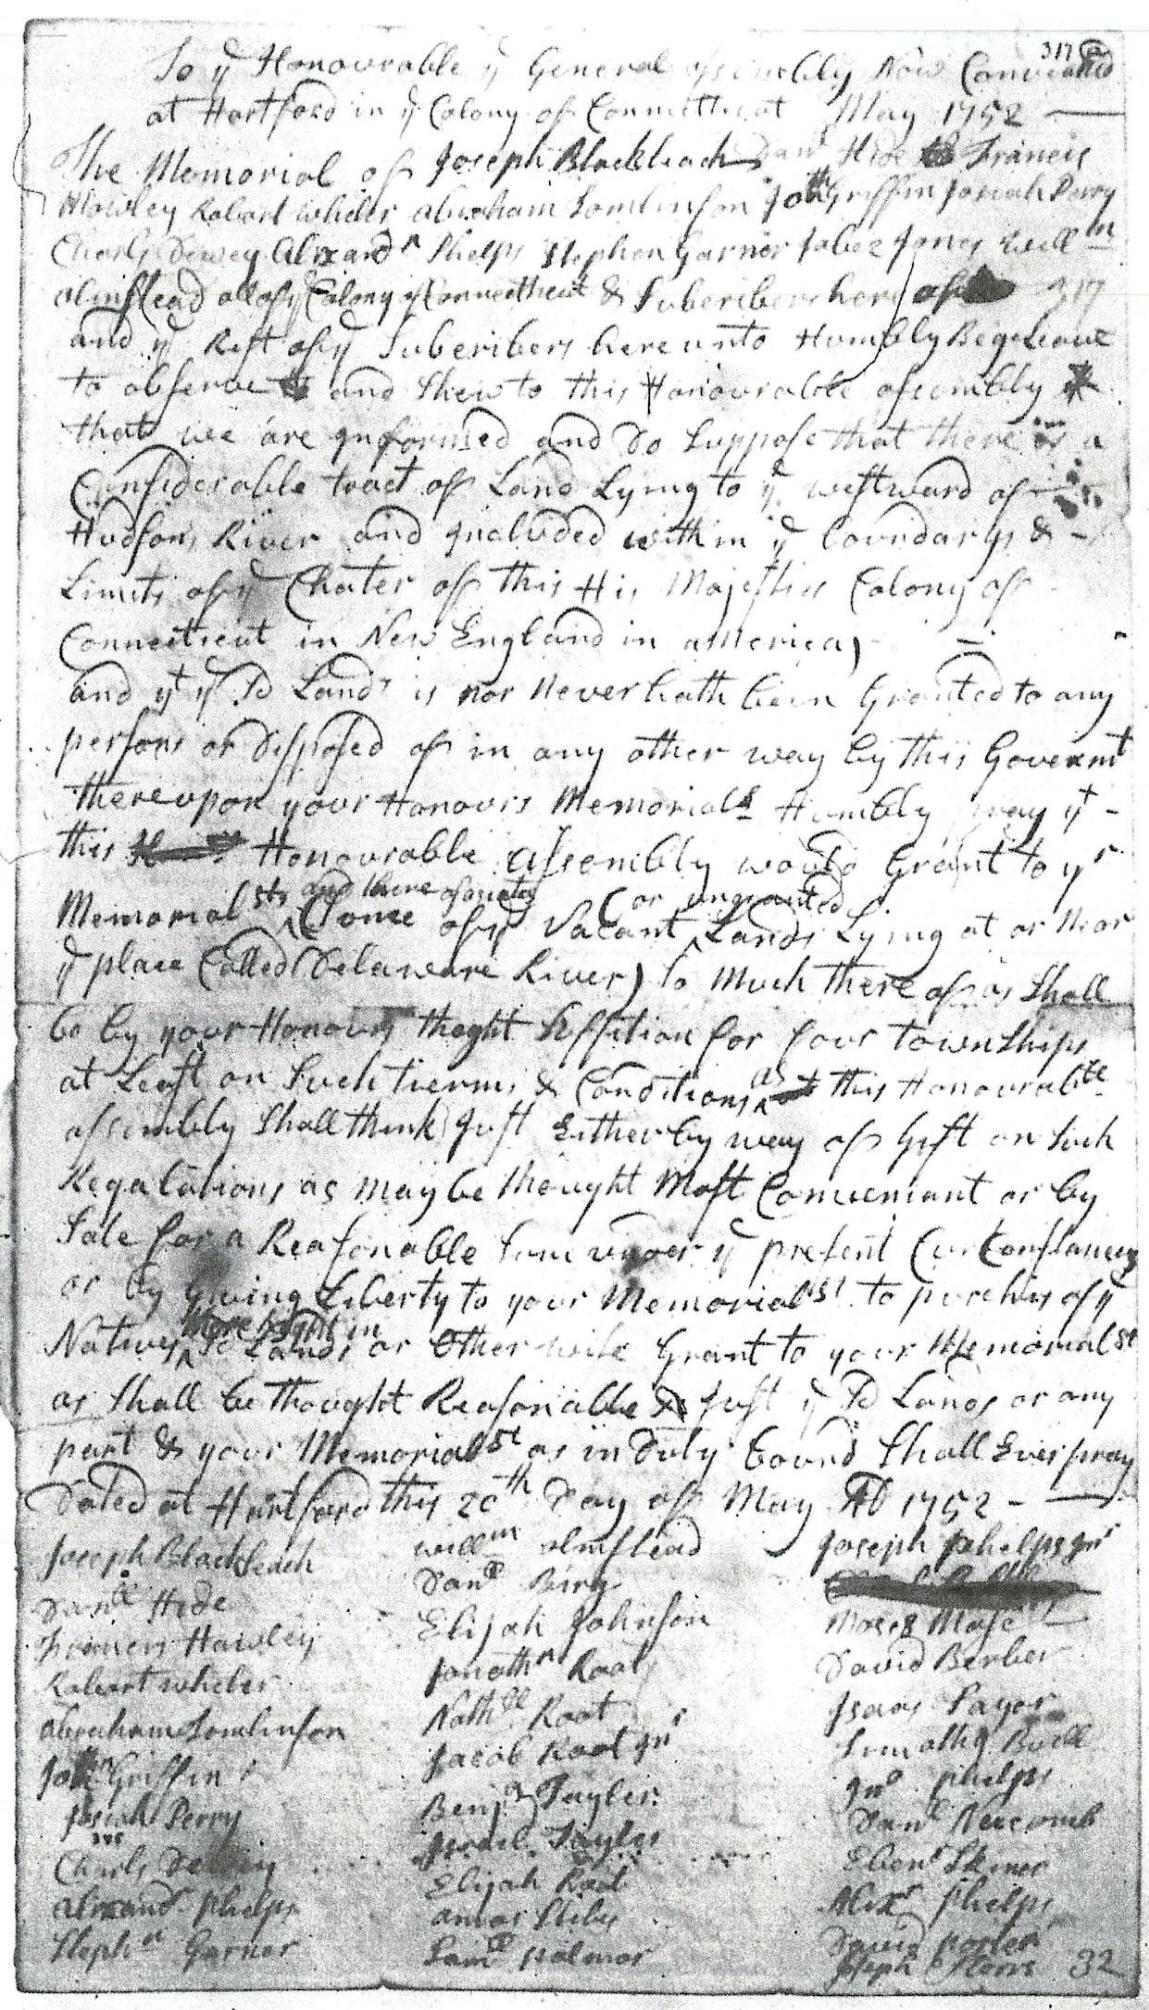 317
To ye Honourable ye General assembly Now Convened
at Hartford in ye Colony of Connetticut May 1752
The Memorial of Joseph Blackleach Danll Hide Francis
Hawley Robart wheler abraham Tomlinson Jon Griffin Josiah Perry
Charls Dewey Alexandr Phelps Stephen Garner Jabez Jones Willm
olmstead all of ye Colony of Connetticut & Subcribers here of 317
and ye Rest of ye Subcribers here unto Humbly Beg Leave
to observe and Shew to this Honourable assembly
that we are Informed and Do Suppose that there is a
Considerable tract of Land Lying to ye westward of
Hudsons River and Included within ye boundarys &
Limits of ye Chater of this His Majesties Colony of
Connetticut in New England in america)
and yt ye Sd Lands is nor Never hath been Granted to any
persons or Disposed of in any other way by this Governmt
thereupon your Honours Memorials Humbly pray yt
this Honourable assembly would Grant to yr
and there asosiates (or ungranted
Memorialsts (some of ye Vacant Lands Lying at or Near
ye place Called Delaware River) so Much there of as Shall
be by your Honours thoght Suffition for four townShips
at Least on Such tierms & Conditions as this Honourable
assembly Shall think Just Either by way of Gift on Such
Regalations as may be thought Most Conveniant or by
Sale for a Reasonable Sum under ye present Curconstances
or by Giving Liberty to your Memorialst to purchis of ye
Natives there Right in Sd Lands or Other wise Grant to your Memorialst
as Shall be thought Reasonable & Just ye Sd Lands or any
part & your Memorialst as in Duty bound Shall Ever pray
Dated at Hartford this 20th Day of May AD 1752
Joseph Blackleach
Danll Hide
Francis Hawley
Robart wheler
abraham Tomlinson
Jon Griffin
Josiah Perry
Charls Dewey
Alexandr Phelps
Stephn Garner
willm olmstead
Danll Bing
Elijah Johnson
Jonathn Root
Nathll Root
Jacob Root Jnr
Benja Tayler
Israel Tayler
Elijah Root
amos Stiles
Samll palmer
Joseph phelps Jnr
Moses Mase
David Berber
Isaac Payor
Timothy Buell
Jno phelps
Danll Newcomb
Ebenr Skiner
Alexr phelps
David porter
Joseph Storrs 32